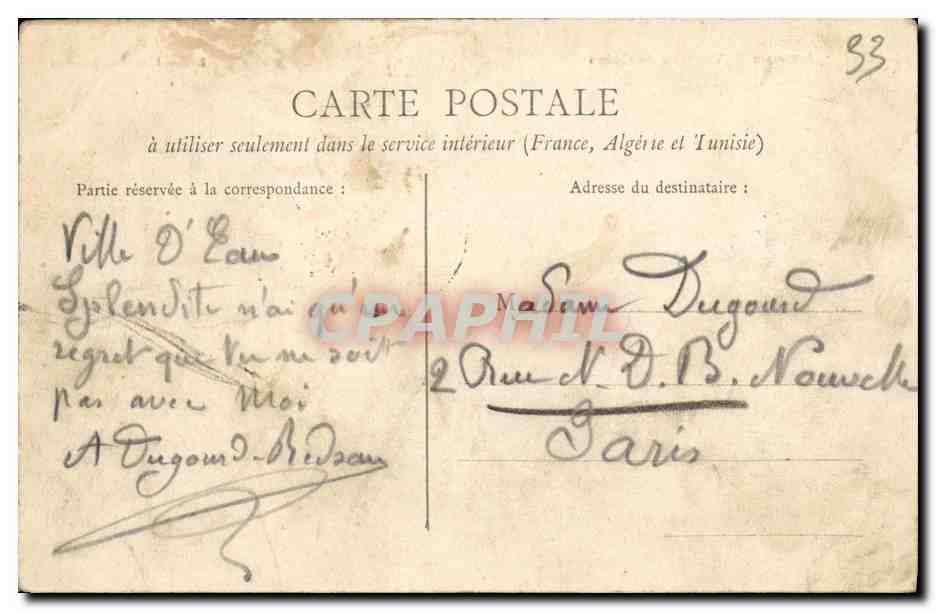 93
CARTE POSTALE
à utiliser seulement dans le service intérieur (France, Algérie et Tunisie)
Partie réservée à la correspondance :
Adresse du destinataire :
Ville D'Eau
Splendite n'ai qu'un
regret que tu ne soit
pas avec Moi
A Dugourd-
Madame Dugourd
2 Rue N. D. B. Nouvelle
Paris
CPAPHIL